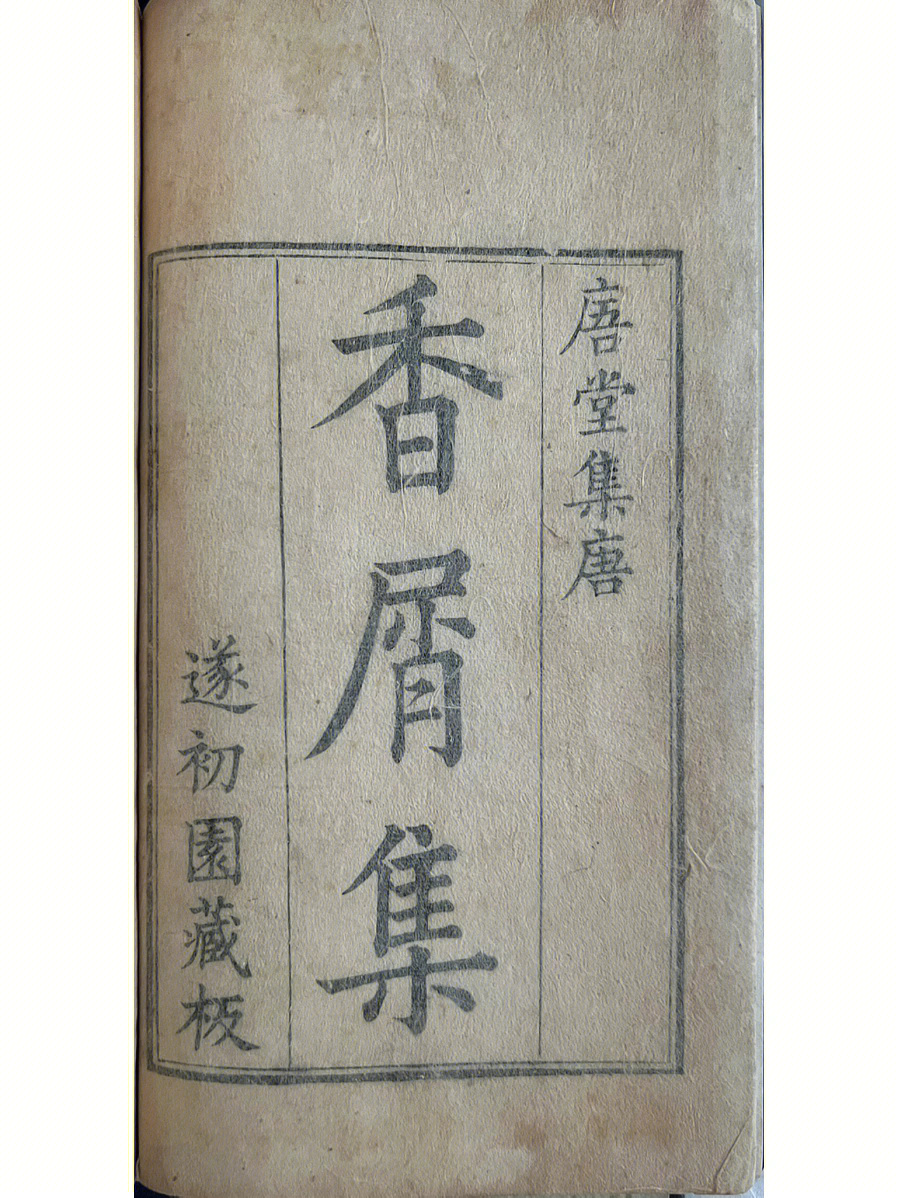 唐堂集唐
香屑集
遂初園藏板